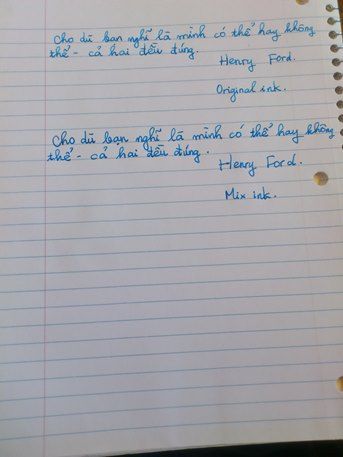 Cho dù bạn nghĩ là mình có thể hay không
thể - cả hai đều đúng.
Henry Ford.
Original ink.
Cho dù bạn nghĩ là mình có thể hay không
thể - cả hai đều đúng.
Henry Ford.
Mix ink.